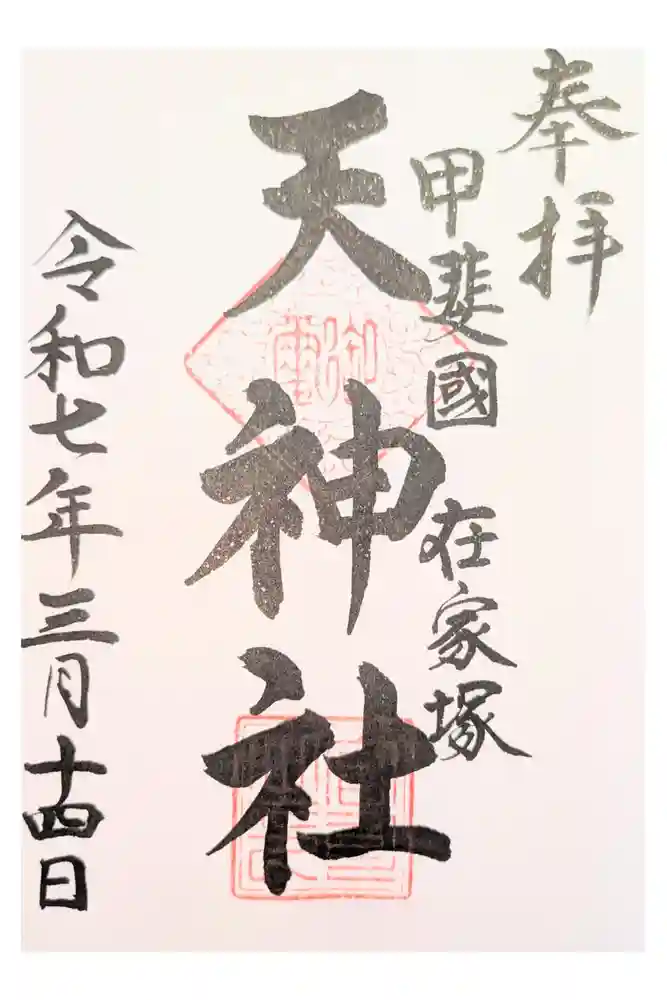 奉拝
甲斐國 在家塚
天神社
令和七年三月十四日